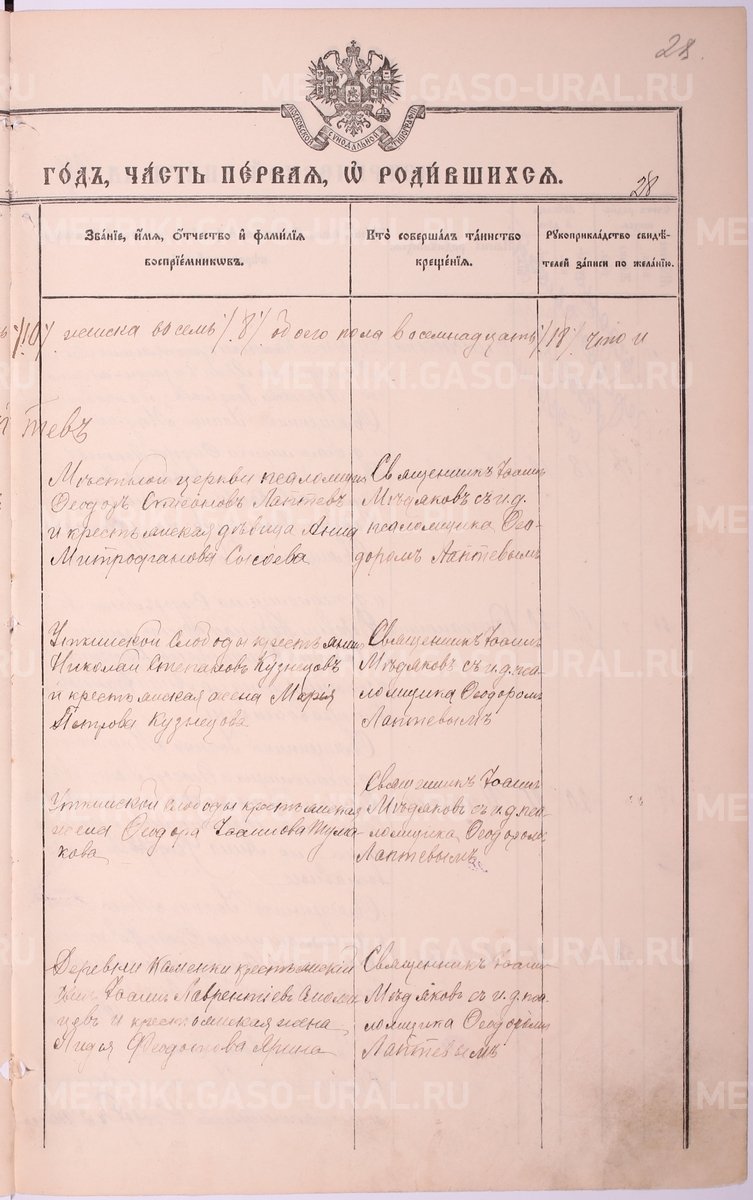 28.
МОСКОВСКОЙ СѴНОДАЛЬНОЙ ТИПОГРАФІИ
ГО́ДЪ, ЧА́СТЬ ПЕ́РВАЯ, Ѡ҆ РОДИ́ВШИХСѦ.
28
Зва́нїе, и҆́мѧ, ѻ҆́тчество и҆ фами́лїѧ
воспрїе́мникѡвъ.
Кто̀ соверша́лъ та́инство
креще́нїѧ.
Рꙋкоприкла́дство свидѣ́-
телей за́писи по жела́нїю.
/10/ женска восемь /8/ обоего пола восемнадцать /18/ что и
тевъ
Мѣстной церкви псаломщик
Ѳеодоръ Симеоновъ Лаптевъ
и крестьянская дѣвица Анна
Митрофанова Сысоева
Священникъ Іоанн
Мѣдяковъ с и.д.
псаломщика Ѳео-
доромъ Лаптевымъ
Уткинской Слободы крестьянин
Николай Степановъ Кузнецовъ
и крестьянская жена Марія
Петрова Кузнецова
Священникъ Іоанн
Мѣдяковъ с и.д. пса
ломщика Ѳеодором
Лаптевымъ
Уткинской слободы крестьянская
жена Ѳеодора Іоаннова
кова
Священникъ Іоанн
Мѣдяковъ с и.д. пса
ломщика Ѳеодором
Лаптевымъ
Деревни Каменки крестьянский
сынъ Іоаннъ Лаврентіевъ
цевъ и крестьянская жена
Лидія Ѳеодотова Ярина
Священникъ Іоанн
Мѣдяковъ с и.д. пса
ломщика Ѳеодоромъ
Лаптевымъ
METRIKI.GASO-URAL.RU